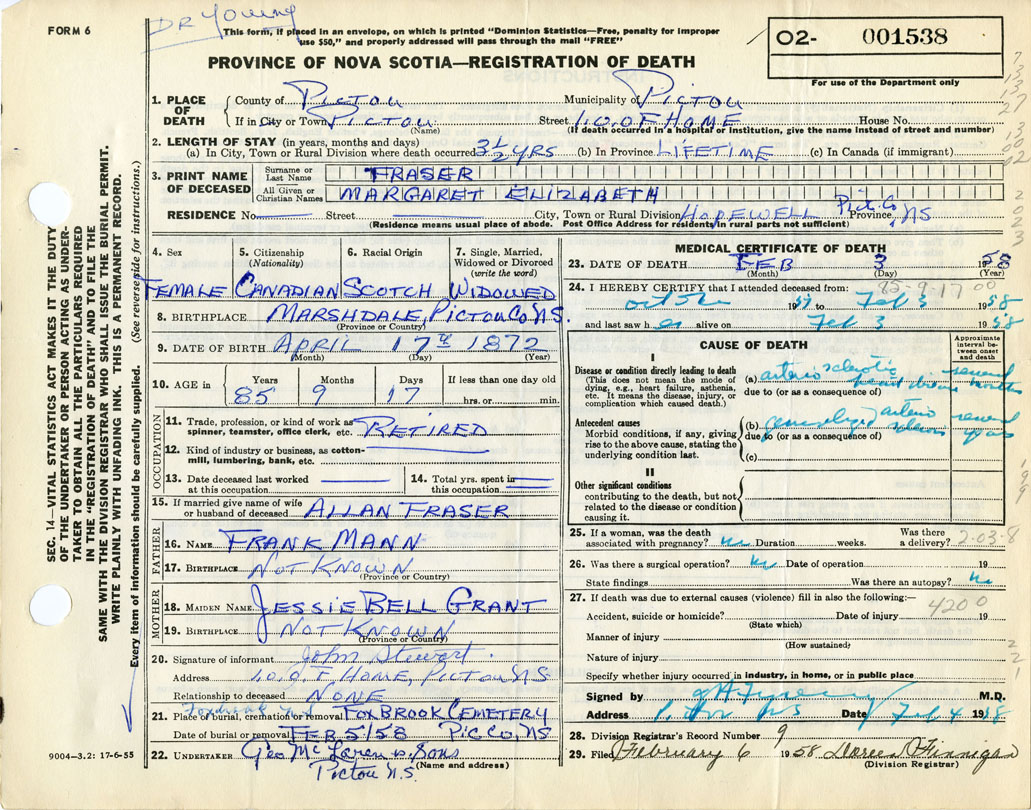 DR Young
FORM 6
This form, if placed in an envelope, on which is printed "Dominion Statistics—Free, penalty for improper
use $50," and properly addressed will pass through the mail "FREE"
O2- 001538
For use of the Department only
PROVINCE OF NOVA SCOTIA—REGISTRATION OF DEATH
1. PLACE OF DEATH
County of PICTOU Municipality of PICTOU
If in City or Town PICTOU (Name) Street I.O.O.F HOME House No.
(If death occurred in a hospital or institution, give the name instead of street and number)
2. LENGTH OF STAY (in years, months and days)
(a) In City, Town or Rural Division where death occurred 3 1/2 YRS (b) In Province LIFETIME (c) In Canada (if immigrant)
3. PRINT NAME OF DECEASED
Surname or Last Name FRASER
All Given or Christian Names MARGARET ELIZABETH
RESIDENCE No. Street City, Town or Rural Division HOPEWELL Pict. Co Province NS
(Residence means usual place of abode. Post Office Address for residents in rural parts not sufficient)
4. Sex 5. Citizenship (Nationality) 6. Racial Origin 7. Single, Married, Widowed or Divorced (write the word)
FEMALE CANADIAN SCOTCH WIDOWED
8. BIRTHPLACE MARSHDALE, PICTOU CO N.S.
(Province or Country)
9. DATE OF BIRTH APRIL 17TH 1872
(Month) (Day) (Year)
10. AGE in Years Months Days If less than one day old
85 9 17 hrs. or min.
OCCUPATION
11. Trade, profession, or kind of work as spinner, teamster, office clerk, etc. RETIRED
12. Kind of industry or business, as cotton-mill, lumbering, bank, etc.
13. Date deceased last worked at this occupation
14. Total yrs. spent in this occupation
15. If married give name of wife or husband of deceased ALLAN FRASER
FATHER
16. NAME FRANK MANN
17. BIRTHPLACE NOT KNOWN
(Province or Country)
MOTHER
18. MAIDEN NAME JESSIE BELL GRANT
19. BIRTHPLACE NOT KNOWN
(Province or Country)
20. Signature of informant John Stewart.
Address I.O.O.F. HOME, PICTOU NS
Relationship to deceased NONE
21. Place of burial, cremation or removal FOXBROOK CEMETERY
Date of burial or removal FEB 5/58 PIC CO, NS
22. UNDERTAKER Geo McLaren & Sons
Pictou N.S. (Name and address)
9004—3.2: 17-6-55
MEDICAL CERTIFICATE OF DEATH
23. DATE OF DEATH FEB 3 1958
(Month) (Day) (Year)
85-9-17 00
24. I HEREBY CERTIFY that I attended deceased from:
1957 to Feb 3 1958
and last saw her alive on Feb 3 1958
CAUSE OF DEATH
Approximate interval between onset and death
I
Disease or condition directly leading to death
(This does not mean the mode of dying, e.g., heart failure, asthenia, etc. It means the disease, injury, or complication which caused death.)
(a) arterio sclerotic heart disease several months
due to (or as a consequence of)
Antecedent causes
Morbid conditions, if any, giving rise to the above cause, stating the underlying condition last.
(b) generalized arterio sclerosis several years
due to (or as a consequence of)
(c)
II
Other significant conditions
contributing to the death, but not related to the disease or condition causing it.
25. If a woman, was the death associated with pregnancy? no Duration weeks. Was there a delivery? 2-03-8
26. Was there a surgical operation? no Date of operation 19
State findings Was there an autopsy? no
27. If death was due to external causes (violence) fill in also the following:—
4200
Accident, suicide or homicide? Date of injury 19
(State which)
Manner of injury
(How sustained)
Nature of injury
Specify whether injury occurred in industry, in home, or in public place
Signed by M.D.
Address Pictou NS Date Feb 4 1958
28. Division Registrar's Record Number 9
29. Filed February 6 1958 Doreen D Finnigan
(Division Registrar)
SEC. 14—VITAL STATISTICS ACT MAKES IT THE DUTY
OF THE UNDERTAKER OR PERSON ACTING AS UNDER-
TAKER TO OBTAIN ALL THE PARTICULARS REQUIRED
IN THE "REGISTRATION OF DEATH" AND TO FILE THE
SAME WITH THE DIVISION REGISTRAR WHO SHALL ISSUE THE BURIAL PERMIT.
WRITE PLAINLY WITH UNFADING INK. THIS IS A PERMANENT RECORD.
Every item of information should be carefully supplied. (See reverse side for instructions.)